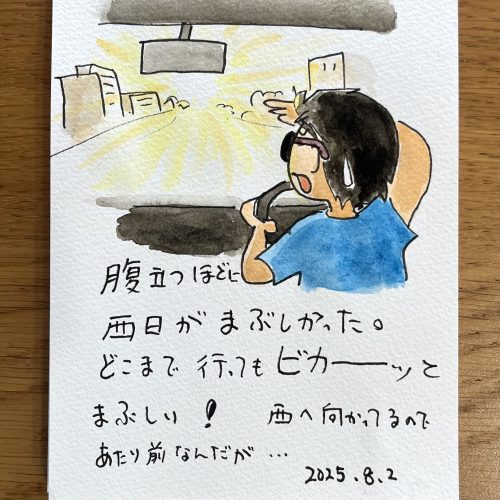 腹立つほどに
西日がまぶしかった。
どこまで行ってもビカーーッと
まぶしい! 西へ向かってるので
あたり前なんだが…
2025.8.2